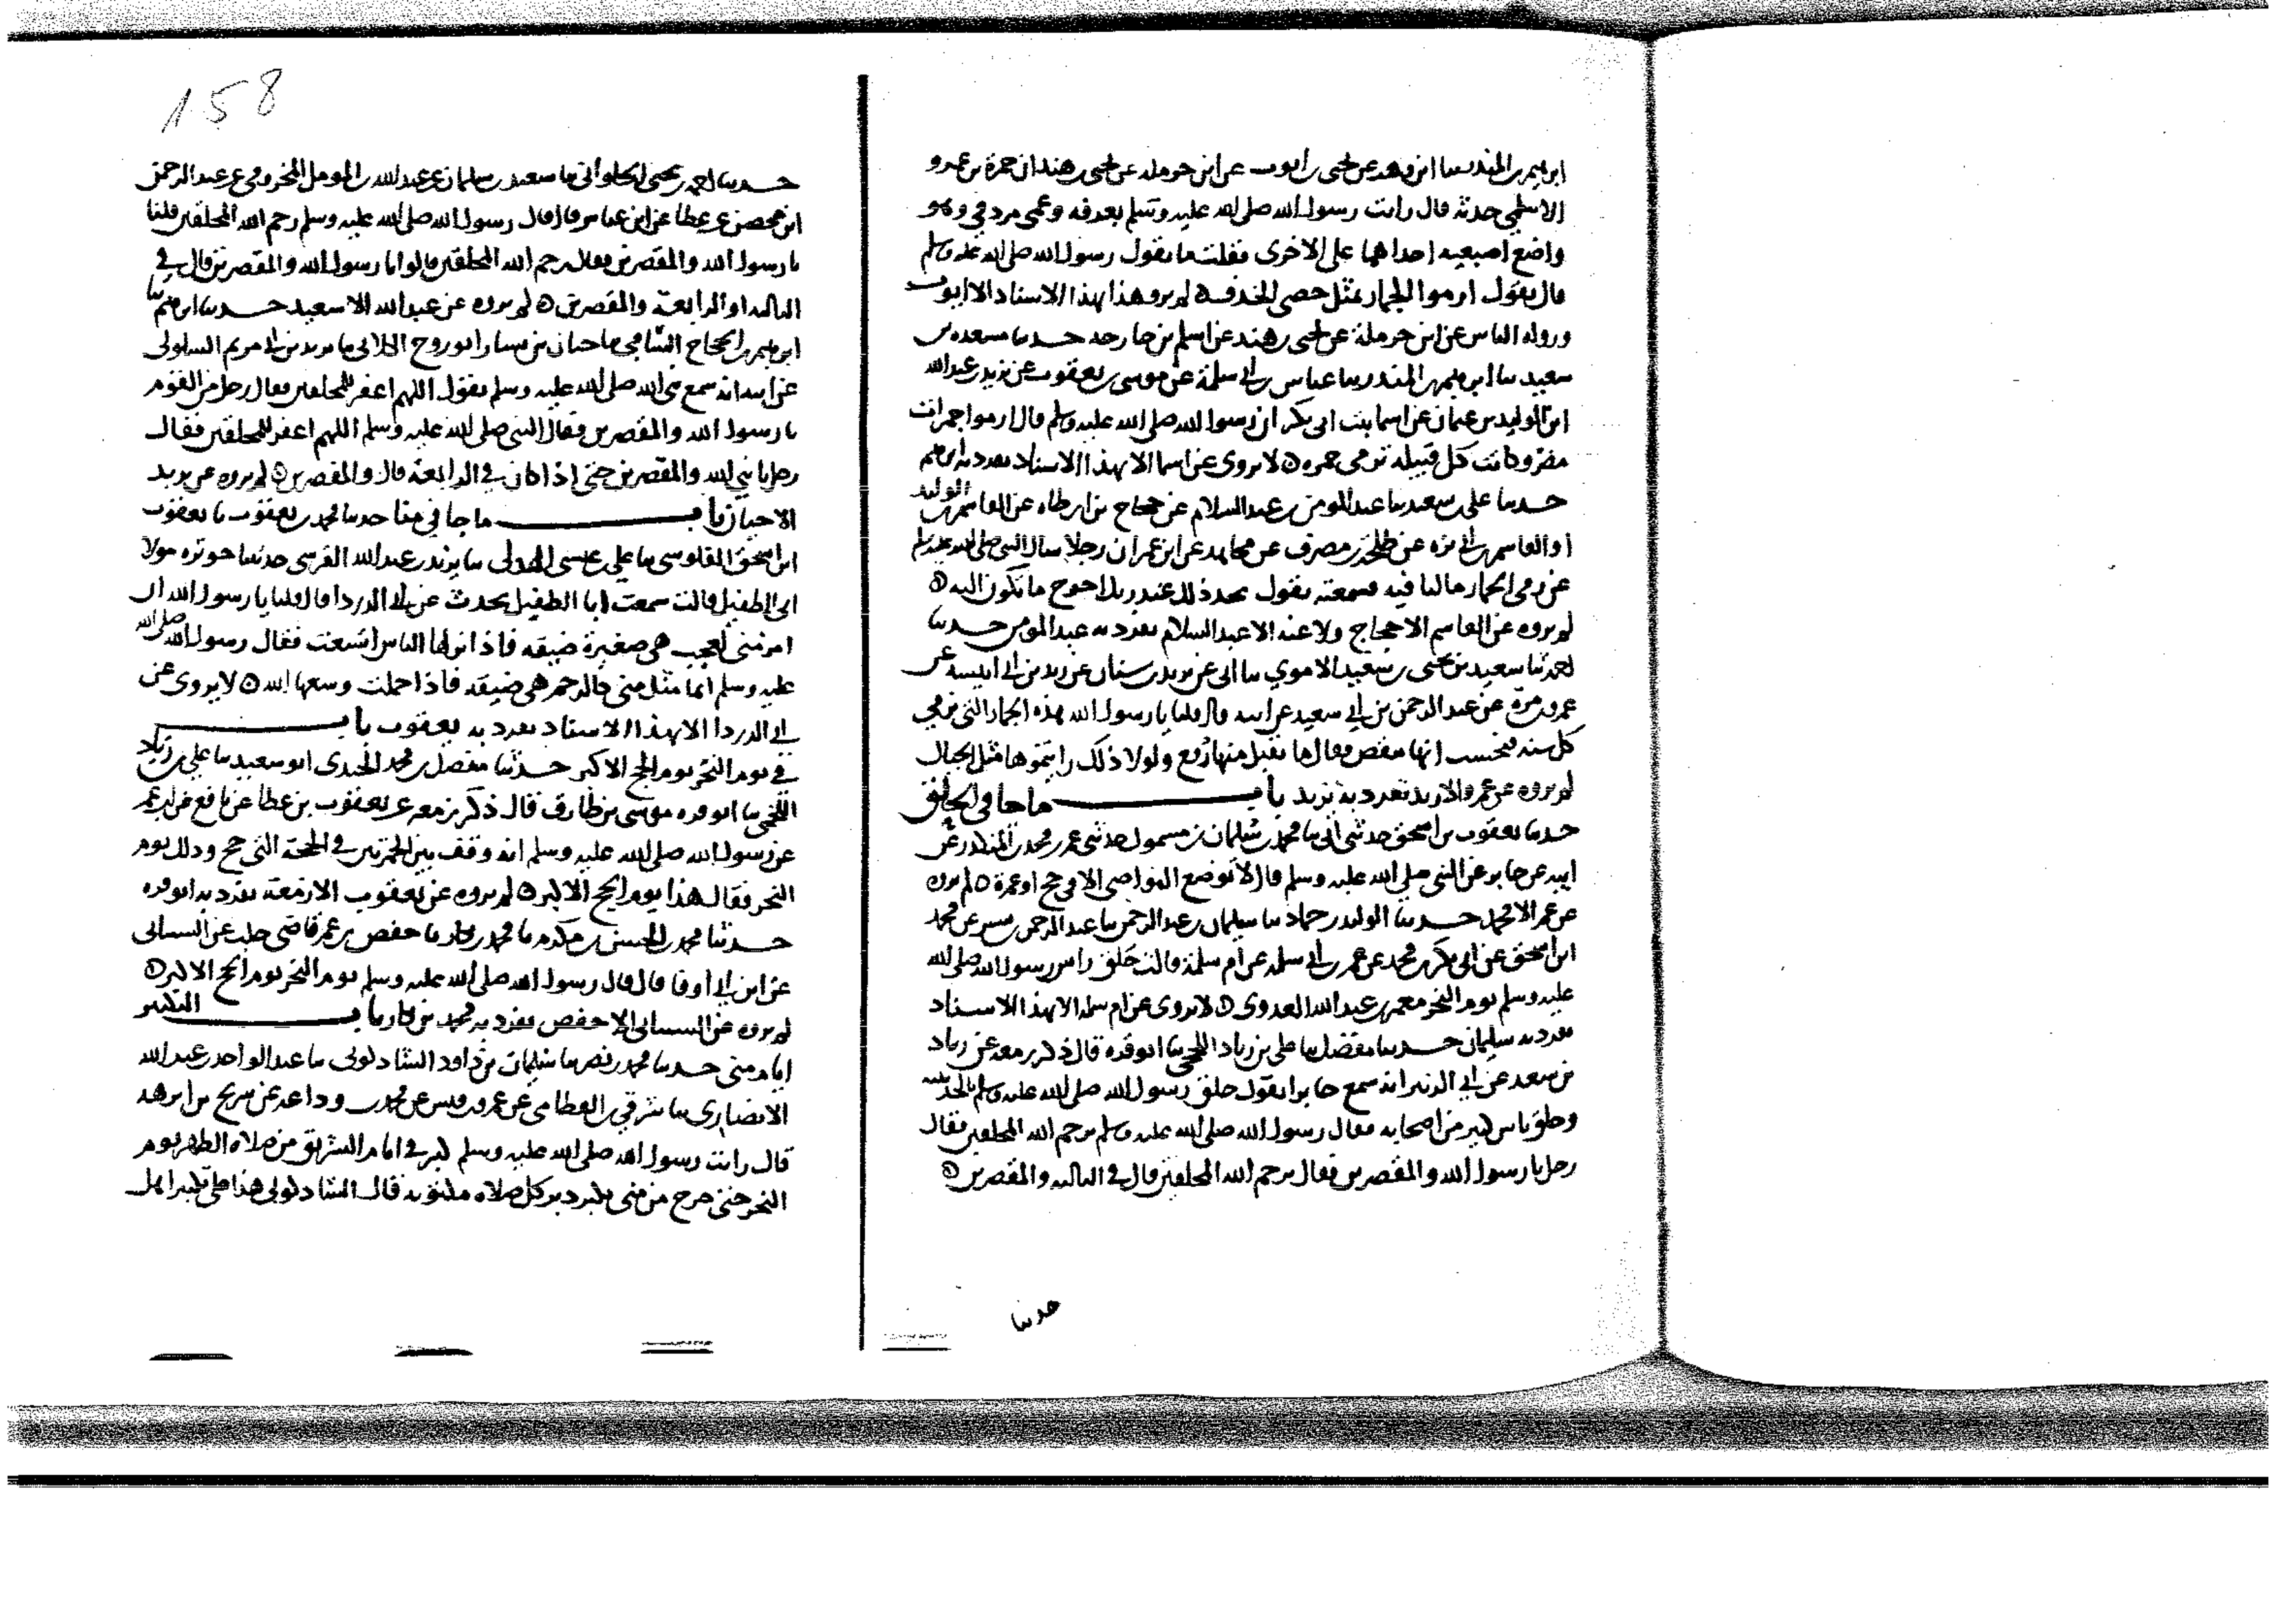 ابرهيم بن المنذر ثنا ابن وهب عن يحيى بن ايوب عن ابن حرملة عن يحيى بن هند ان حمزة بن عمرو
الاسلمي حدثه قال رايت رسول الله صلى الله عليه وسلم بعرفة وعمي مردفي وهو
واضع اصبعيه احداهما على الاخرى فقلت ما يقول رسول الله صلى الله عليه وسلم
قال يقول ارموا الجمار بمثل حصى الخذف لم يرو هذا بهذا الاسناد الا ايوب
ورواه الناس عن ابن حرملة عن يحيى بن هند عن اسلم بن خارجة حدثنا مسعدة بن
سعيد ثنا ابرهيم بن المنذر ثنا عباس بن ابي سلمة عن موسى بن يعقوب عن يزيد بن عبد الله
ابن الوليد بن عثمان عن اسما بنت ابى بكر ان رسول الله صلى الله عليه وسلم قال ارموا جمرات
مضر وكانت كل قبيلة ترمي جمرة لا يروى عن اسما الا بهذا الاسناد تفرد به ابرهيم
حدثنا علي بن سعيد ثنا عبد المومن بن عبد السلام عن حجاج بن ارطاه عن القاسم بن الوليد
او القاسم بن ابي بزه عن طلحة بن مصرف عن مجاهد عن ابن عمر ان رجلا سال النبي صلى الله عليه وسلم
عن رمي الجمار مالنا فيه فسمعته يقول تجد ذلك عند ربك احوج ما تكون اليه
لم يروه عن القاسم الا حجاج ولا عنه الا عبد السلام تفرد به عبد المومن حدثنا
احمد ثنا سعيد بن يحيى بن سعيد الاموي ثنا ابى عن يزيد بن سنان عن زيد بن ابي انيسة عن
عمرو بن مرة عن عبد الرحمن بن ابي سعيد عن ابيه قال قلنا يا رسول الله هذه الجمار التي نرمي
كل سنه فنحسب انها تنقص فقال ما يقبل منها رفع ولولا ذلك رايتموها مثل الجبال
لم يروه عن عمرو الا زيد تفرد به يزيد باب ما جا في الحلق
حدثنا يعقوب بن اسحق حدثني ابى ثنا محمد بن سليمان بن مسمول حدثني عمر بن محمد بن المنكدر عن
ابيه عن جابر عن النبي صلى الله عليه وسلم قال لا توضع النواصي الا في حج او عمرة لم يروه
عن عمر الا محمد حدثنا الوليد بن حماد ثنا سليمان بن عبد الرحمن ثنا عبد الرحمن بن بشير عن محمد
ابن اسحق عن ابى بكر بن محمد عن عمر بن ابي سلمه عن ام سلمة قالت حلق راس رسول الله صلى الله
عليه وسلم يوم النحر معمر بن عبد الله العدوي لا يروى عن ام سلمه الا بهذا الاسناد
تفرد به سليمان حدثنا مفضل ثنا علي بن زياد اللحجي ثنا ابو قره قال ذكر زمعه عن زياد
بن سعد عن ابي الزبير انه سمع جابرا يقول حلق رسول الله صلى الله عليه وسلم بالحديبيه
وحلق ناس كثير من اصحابه فقال رسول الله صلى الله عليه وسلم يرحم الله المحلقين فقال
رجل يا رسول الله والمقصرين فقال يرحم الله المحلقين قال في الثالثه والمقصرين
حدثنا
158
حدثنا احمد بن يحيى الحلواني ثنا سعيد بن سليمان عن عبد الله بن المومل المخزومي عن عبد الرحمن
ابن محصن عن عطا عن ابن عباس قال قال رسول الله صلى الله عليه وسلم رحم الله المحلقين قلنا
يا رسول الله والمقصرين فقال رحم الله المحلقين قالوا يا رسول الله والمقصرين قال في
الثالثه او الرابعة والمقصرين لم يروه عن عبد الله الا سعيد حدثنا ابرهيم ثنا
ابرهيم بن الحجاج الشامي ثنا حبان بن يسار ابو روح الكلابي ثنا بريد بن ابي مريم السلولي
عن ابيه انه سمع نبي الله صلى الله عليه وسلم يقول اللهم اغفر للمحلقين فقال رجل من القوم
يا رسول الله والمقصرين فقال النبي صلى الله عليه وسلم اللهم اغفر للمحلقين فقال
رجل يا نبي الله والمقصرين حتى اذا كان في الرابعة قال والمقصرين لم يروه عن بريد
الا حبان باب ما جا في منا حدثنا محمد بن يعقوب ثنا يعقوب
ابن اسحق القلوسي ثنا علي بن عيسى الهذلي ثنا يزيد بن عبد الله القرشي حدثتنا جويره مولاة
ابى الطفيل قالت سمعت ابا الطفيل يحدث عن ابي الدردا قال قلنا يا رسول الله ان
امر منى لعجب هي صغيرة ضيقه فاذا نزلها الناس اتسعت فقال رسول الله صلى الله
عليه وسلم انما مثل منى كالرحم هي ضيقه فاذا حملت وسعها الله لا يروى عن
ابي الدردا الا بهذا الاسناد تفرد به يعقوب باب
في يوم النحر يوم الحج الاكبر حدثنا مفضل بن محمد الجندي ابو سعيد ثنا علي بن زياد
اللحجي ثنا ابو قره موسى بن طارق قال ذكر زمعه عن يعقوب بن عطا عن نافع عن ابن عمر
عن رسول الله صلى الله عليه وسلم انه وقف بين الجمرتين في الحجة التي حج وذلك يوم
النحر فقال هذا يوم الحج الاكبر لم يروه عن يعقوب الا زمعة تفرد به ابو قره
حدثنا محمد بن الحسين بن مكرم ثنا محمد بن بكار ثنا حفص بن عمر قاضي حلب عن الشيبانى
عن ابن ابي اوفا قال قال رسول الله صلى الله عليه وسلم يوم النحر يوم الحج الاكبر
لم يروه عن الشيبانى الا حفص تفرد به محمد بن بكار باب التكبير
ايام منى حدثنا محمد بن نصر ثنا سليمان بن داود الشاذكوني ثنا عبد الواحد بن عبد الله
الانصاري ثنا شرقي بن القطامي عن عمرو بن قيس عن محمد بن وداعه عن شريح بن ابرهه
قال رايت رسول الله صلى الله عليه وسلم كبر في ايام التشريق من صلاة الظهر يوم
النحر حتى خرج من منى يكبر دبر كل صلاه مكتوبه قال الشاذكوني هذا على تكبير اهل